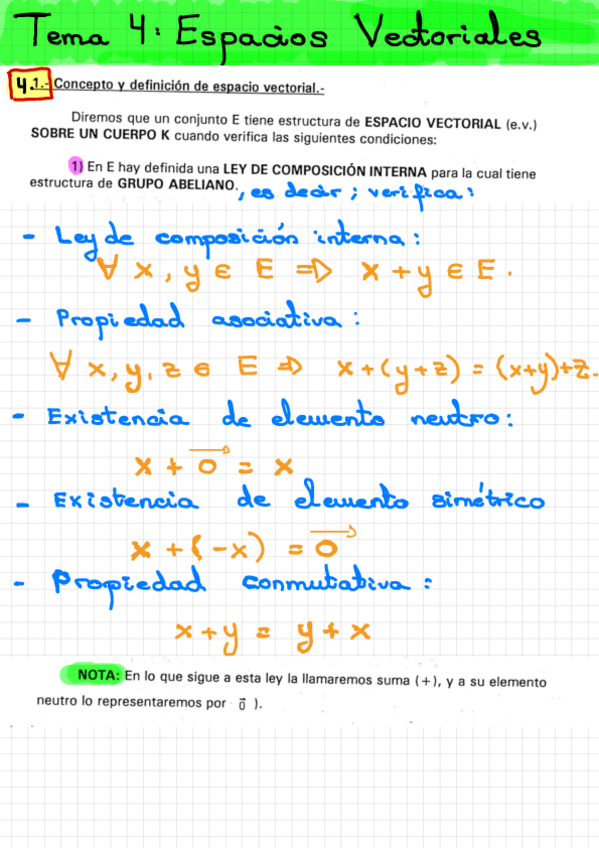 Tema 4: Espacios Vectoriales
4.1.- Concepto y definición de espacio vectorial.-
Diremos que un conjunto E tiene estructura de ESPACIO VECTORIAL (e.v.)
SOBRE UN CUERPO K cuando verifica las siguientes condiciones:
1) En E hay definida una LEY DE COMPOSICIÓN INTERNA para la cual tiene
estructura de GRUPO ABELIANO. , es decir ; verifica:
- Ley de composición interna:
∀ x, y ∈ E ⇒ x + y ∈ E.
- Propiedad asociativa:
∀ x, y, z ∈ E ⇒ x+(y+z) = (x+y)+z.
- Existencia de elemento neutro:
x + 0⃗ = x
- Existencia de elemento simétrico
x + (-x) = 0⃗
- Propiedad conmutativa:
x+y = y+x
NOTA: En lo que sigue a esta ley la llamaremos suma (+), y a su elemento
neutro lo representaremos por 0⃗ ).